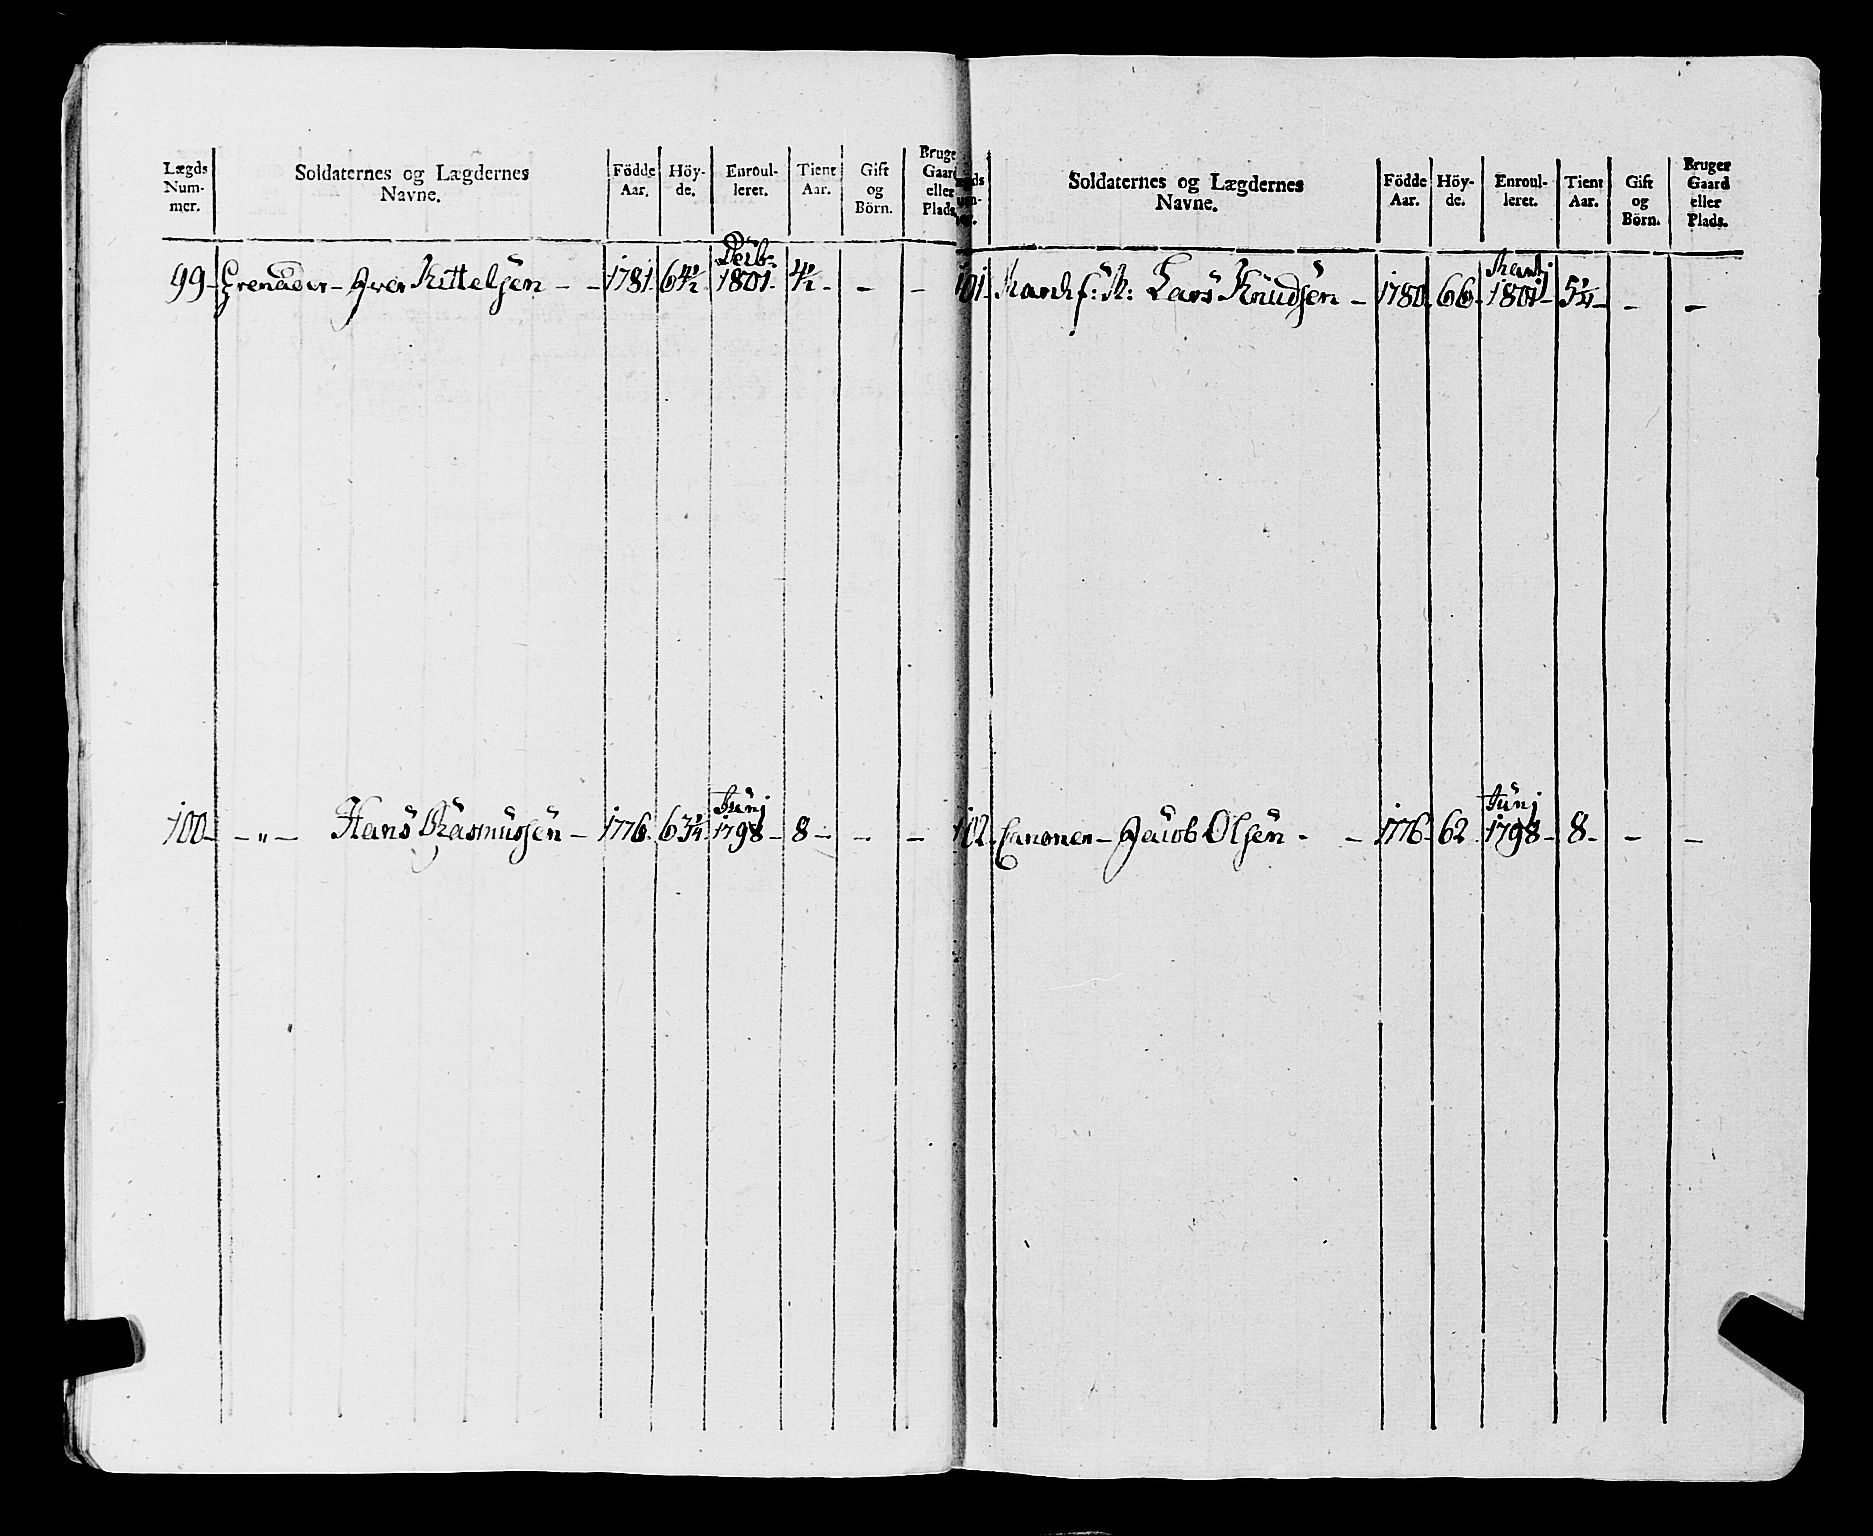 Lægds Num- mer.
Soldaternes og Lægdernes Navne.
Födde Aar.
Höy- de.
Enroul- leret.
Tient Aar.
Gift og Börn.
Bruger Gaard eller Plads.
99 Grenader - Iver Kittelsen - - 1781 64 1/2 1801 4 1/2 - -
100 - " - Hans Rasmussen - 1776 63 1/4 Junj 1798 8 - - -
Soldaternes og Lægdernes Navne.
Födde Aar.
Höy- de.
Enroul- leret.
Tient Aar.
Gift og Börn.
Bruger Gaard eller Plads.
101 Lars Knudsen - 1780 66 Martj 1801 5 1/4 - -
102 Canoner - Jacob Olsen - - 1776 62 Junj 1798 8 - - -